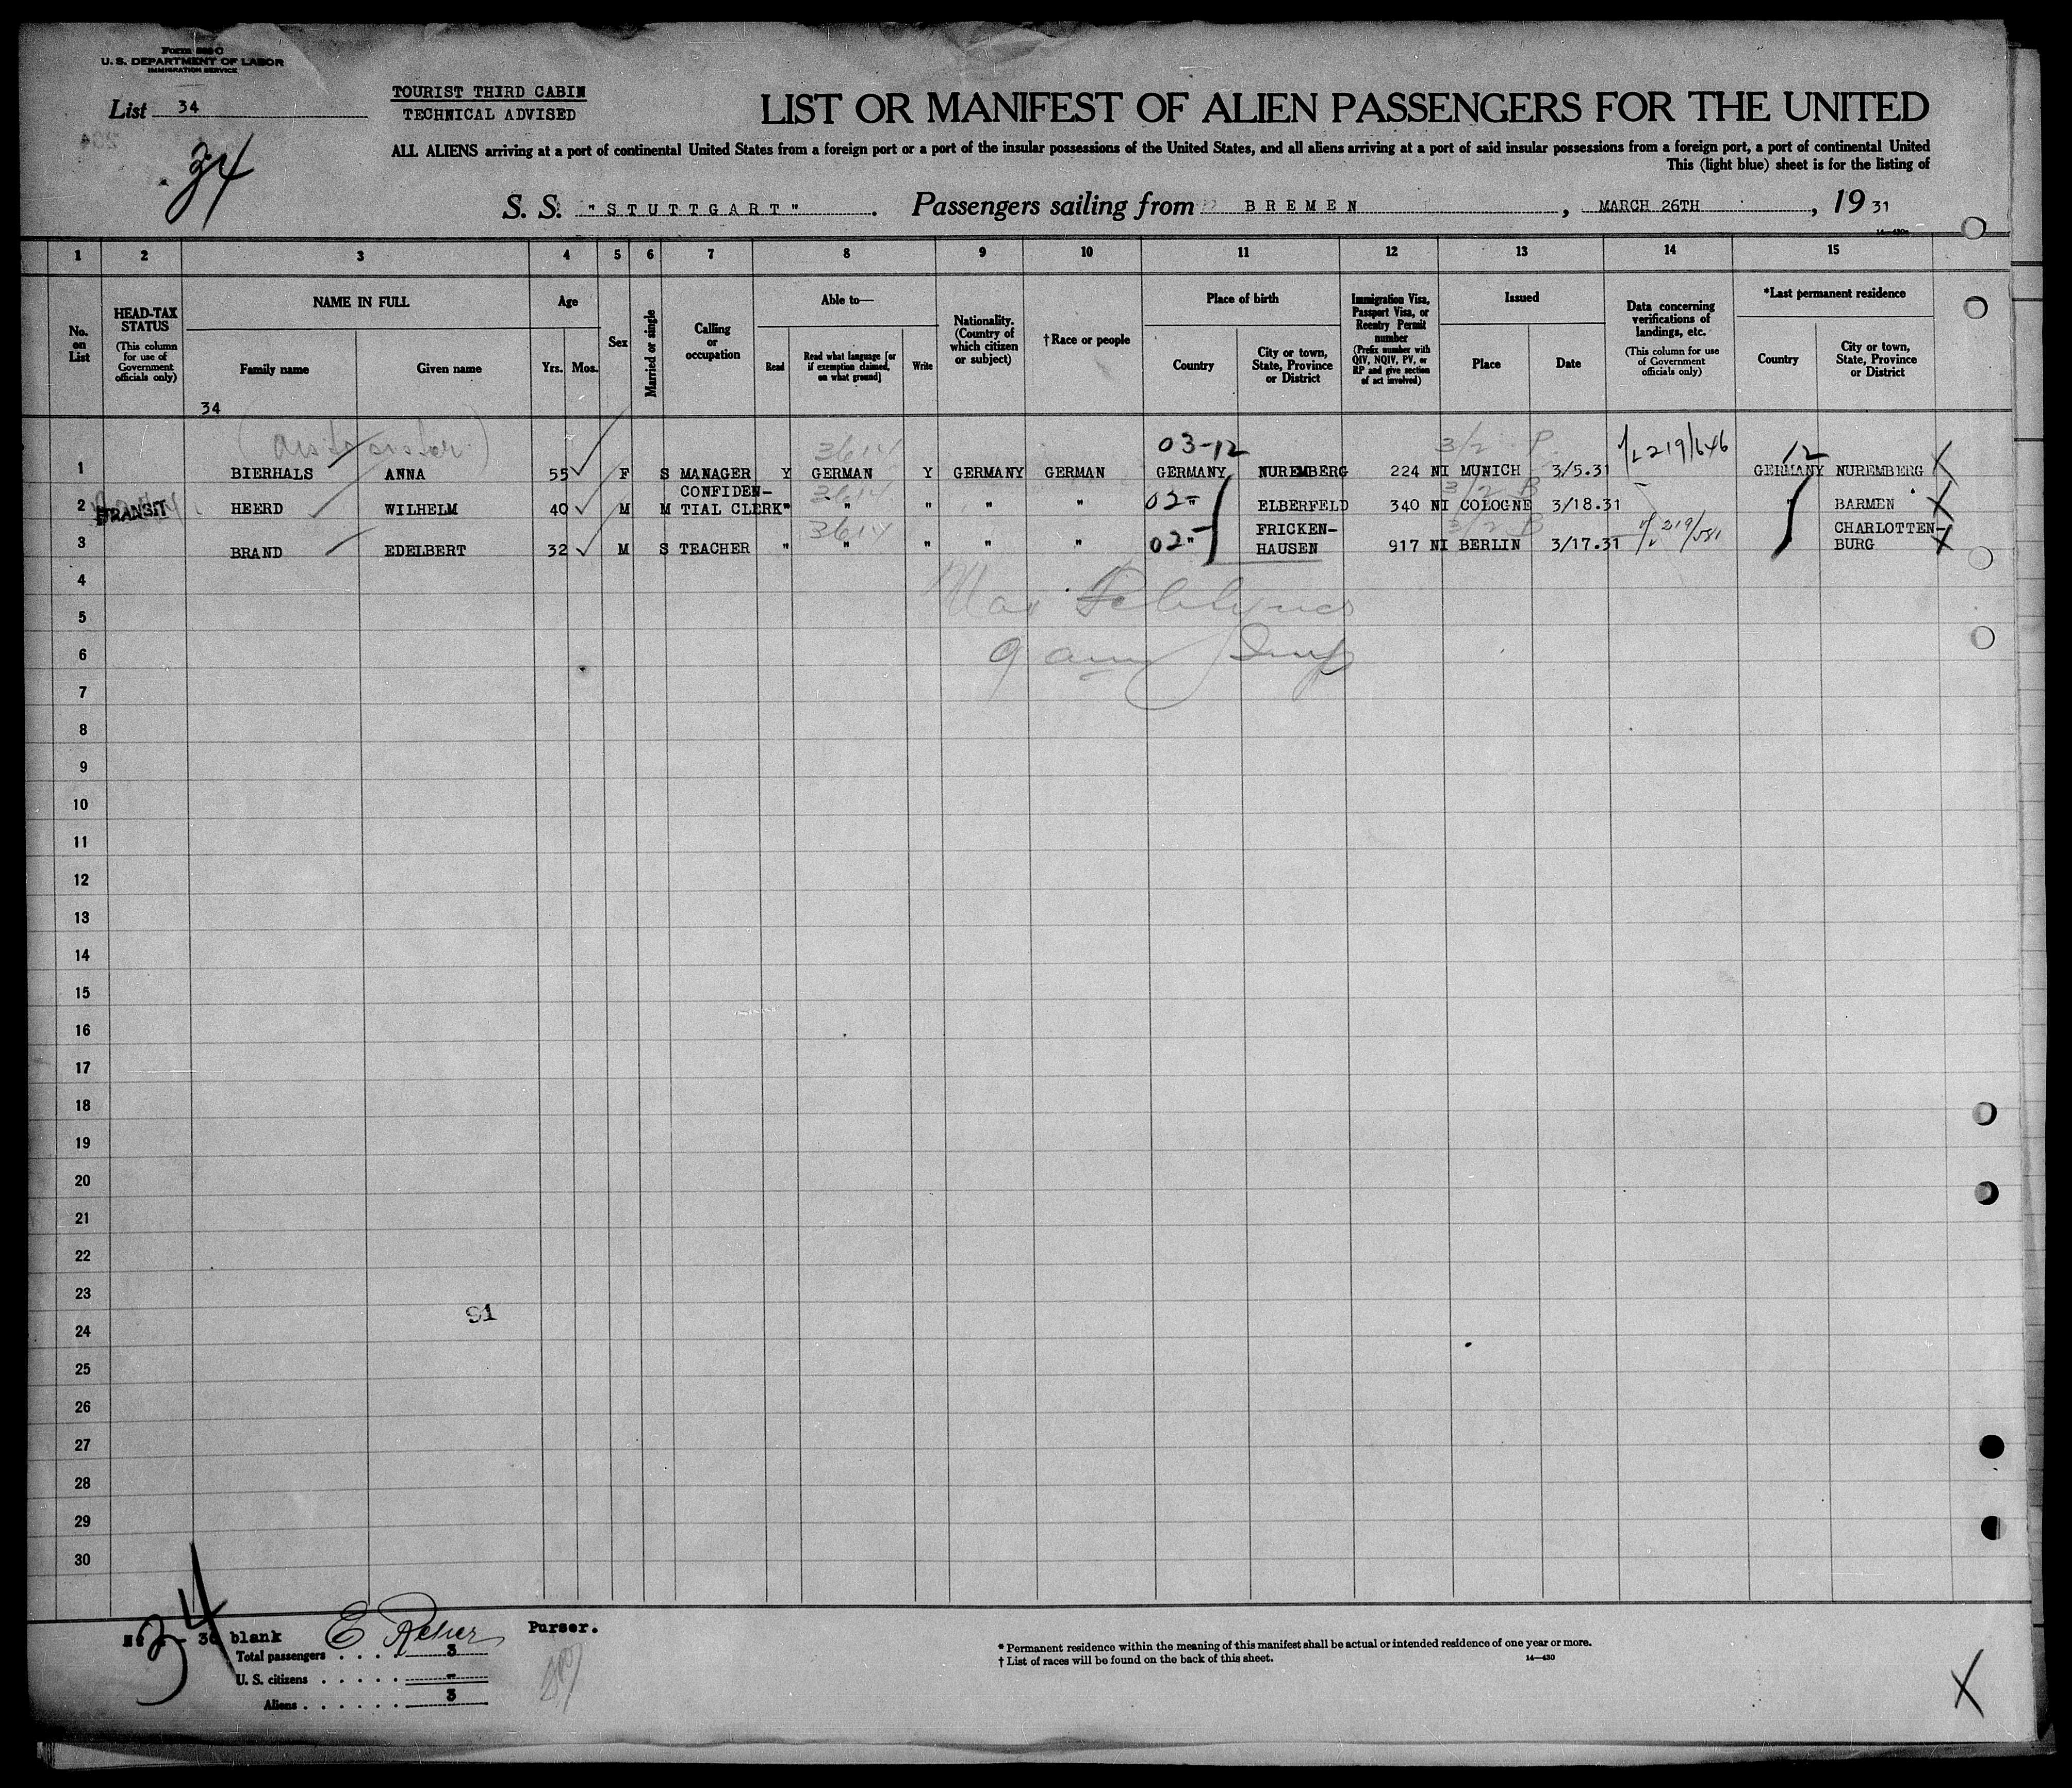 Form 500 C
U. S. DEPARTMENT OF LABOR
IMMIGRATION SERVICE
List 34
34
TOURIST THIRD CABIN
TECHNICAL ADVISED
LIST OR MANIFEST OF ALIEN PASSENGERS FOR THE UNITED
ALL ALIENS arriving at a port of continental United States from a foreign port or a port of the insular possessions of the United States, and all aliens arriving at a port of said insular possessions from a foreign port, a port of continental United
This (light blue) sheet is for the listing of
S. S. "STUTTGART". Passengers sailing from BREMEN, MARCH 26TH, 19 31
14—430a
1 2 3 4 5 6 7 8 9 10 11 12 13 14 15
No. on List
HEAD-TAX STATUS
(This column for use of Government officials only)
NAME IN FULL
Family name
Given name
Age
Yrs. Mos.
Sex
Married or single
Calling or occupation
Able to—
Read
Read what language [or if exemption claimed, on what ground]
Write
Nationality. (Country of which citizen or subject)
†Race or people
Place of birth
Country
City or town, State, Province or District
Immigration Visa, Passport Visa, or Reentry Permit number
(Prefix number with QIV, NQIV, PV, or RP and give section of act involved)
Issued
Place
Date
Data concerning verifications of landings, etc.
(This column for use of Government officials only)
*Last permanent residence
Country
City or town, State, Province or District
34
3614 03-12 3/2 P. 219/646 12
1 BIERHALS ANNA 55 F S MANAGER Y GERMAN Y GERMANY GERMAN GERMANY NUREMBERG 224 NI MUNICH 3/5.31 GERMANY NUREMBERG X
3614 3/2 B
2 TRANSIT HEERD WILHELM 40 M M CONFIDEN- TIAL CLERK " " " " " 02- " ELBERFELD 340 NI COLOGNE 3/18.31 " BARMEN X
3614 3/2 B
3 BRAND EDELBERT 32 M S TEACHER " " " " " 02 " FRICKEN- HAUSEN 917 NI BERLIN 3/17.31 219/581 CHARLOTTEN- BURG X
4
5
6
7
8
9
10
11
12
13
14
15
16
17
18
19
20
21
22
23
91
24
25
26
27
28
29
30
34
30 blank
E Reher Purser.
Total passengers . . . . 3
U. S. citizens . . . . . -
Aliens . . . . . . 3
* Permanent residence within the meaning of this manifest shall be actual or intended residence of one year or more.
† List of races will be found on the back of this sheet.
14—430
X